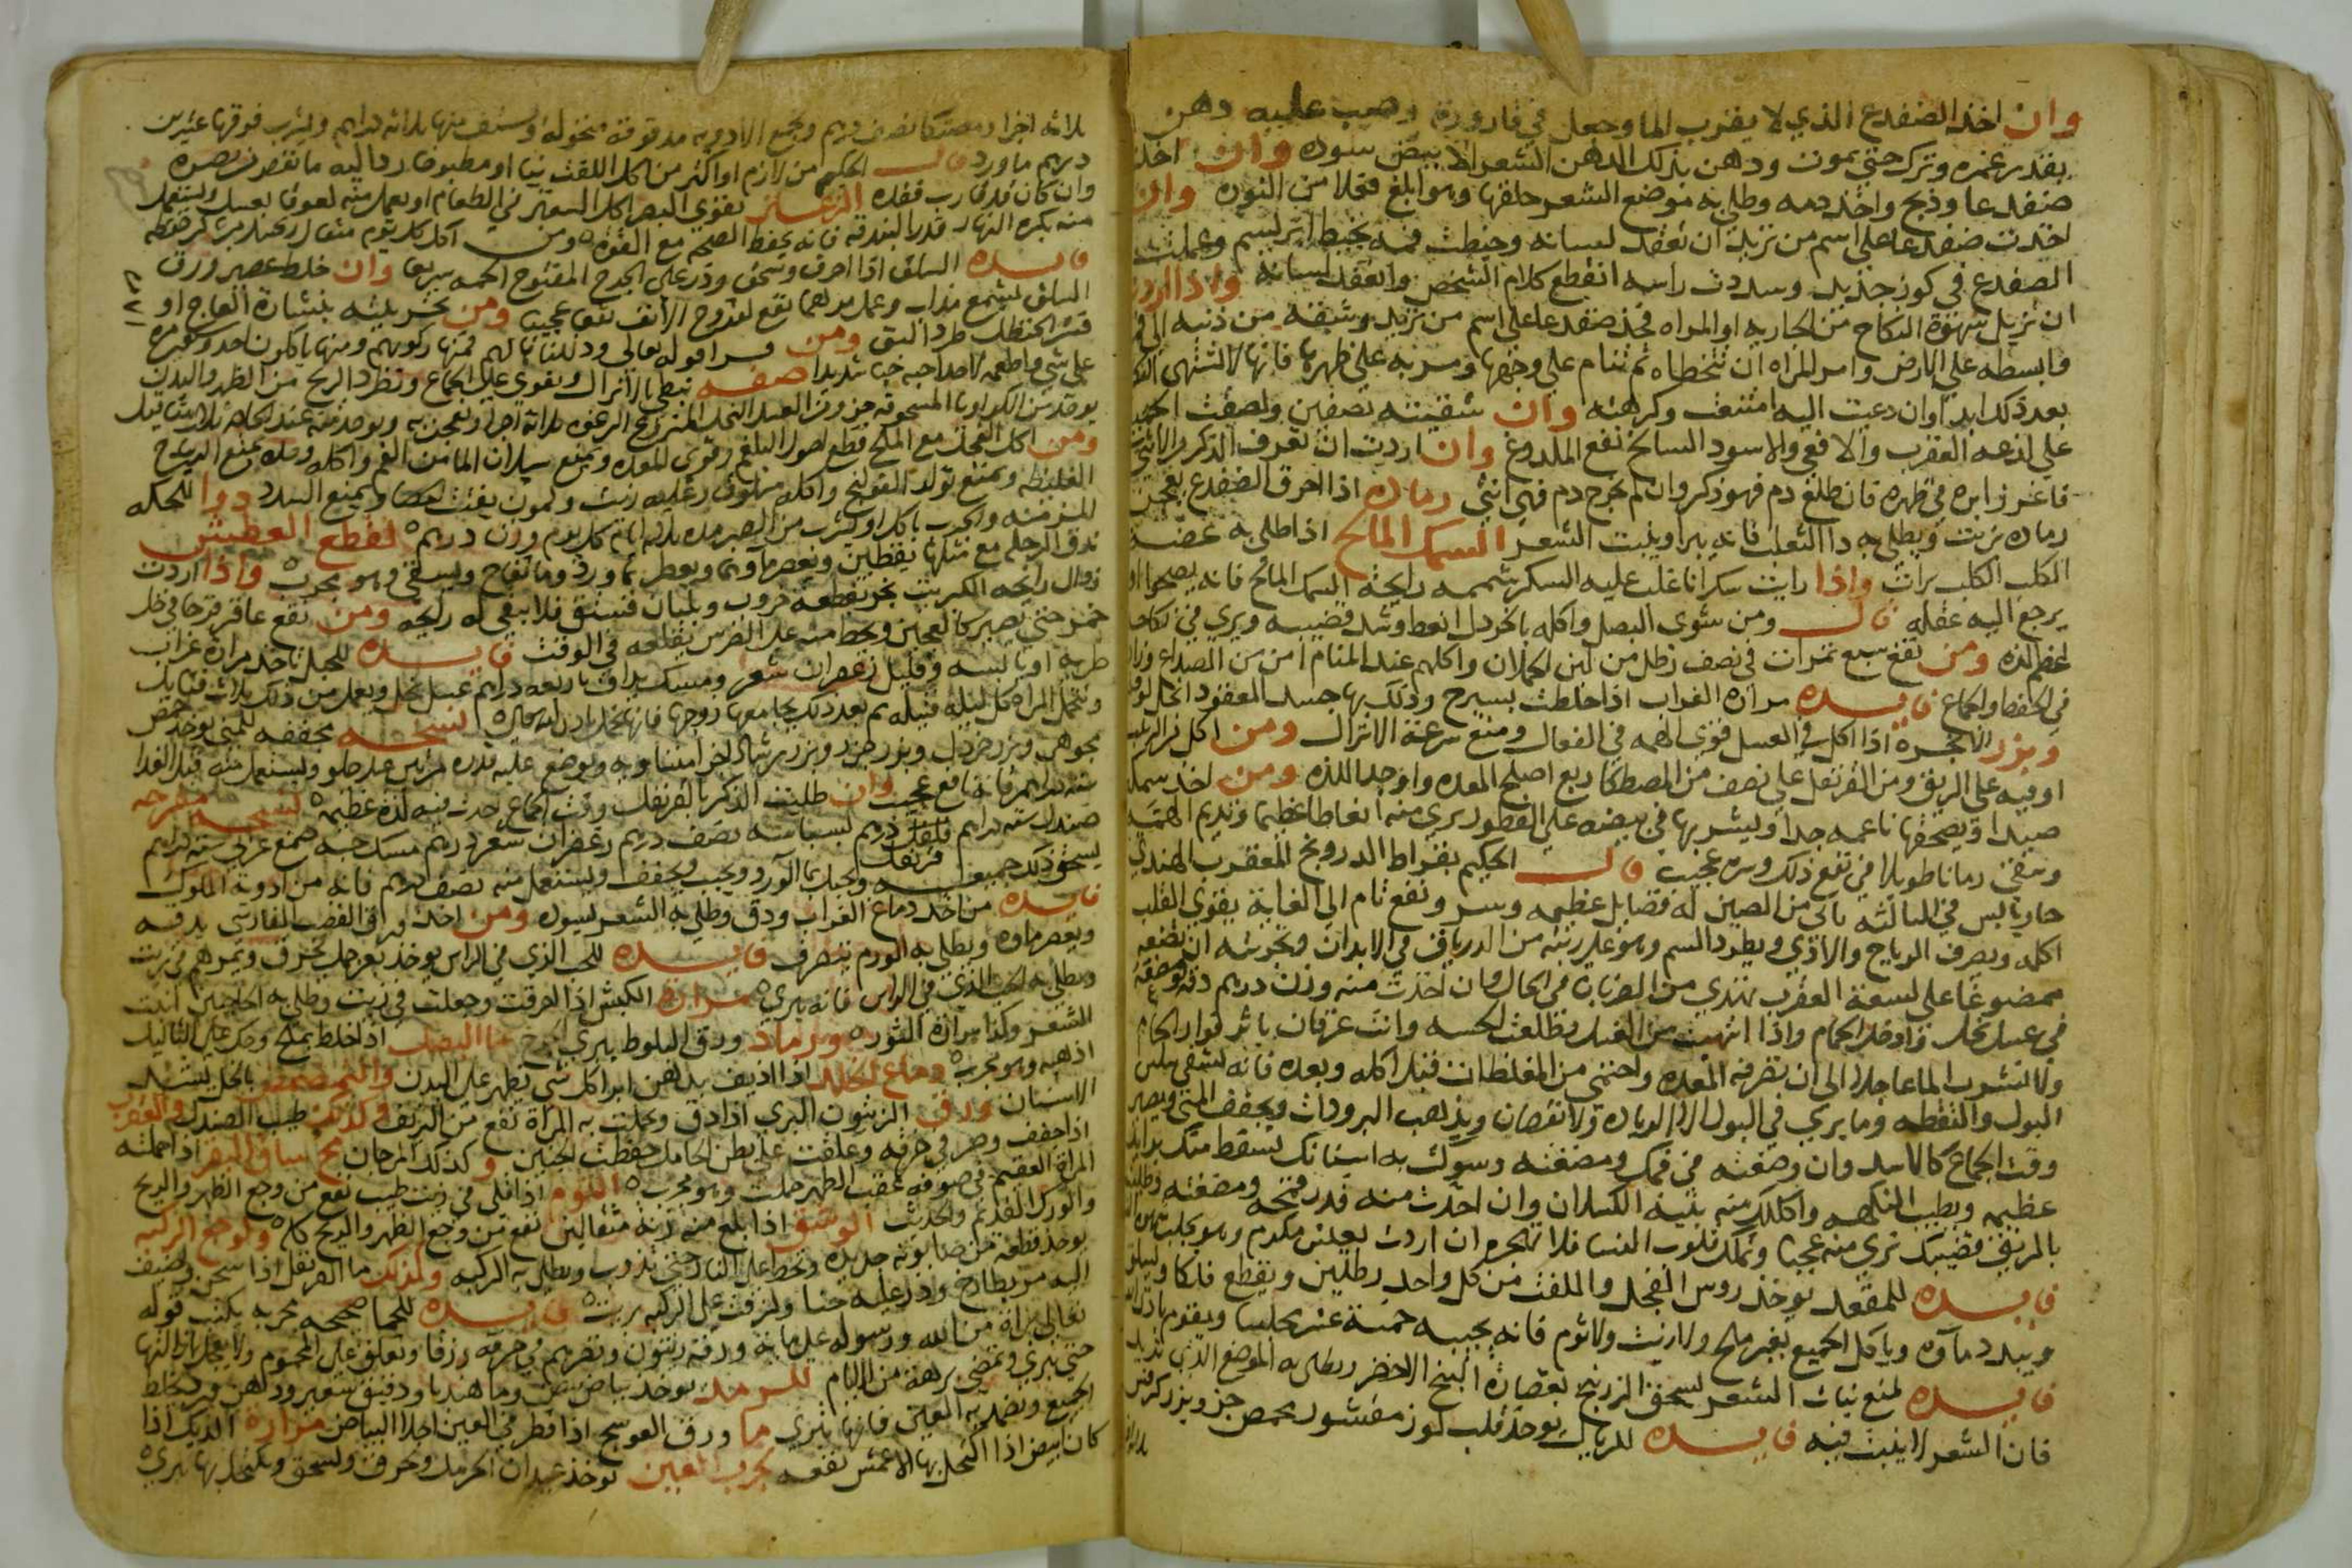 وان اخذ الضفدع الذي لا يقرب الما وجعل في قارورة وصب عليه دهن
بقدر غمره وترك حتى يموت ودهن بذلك الدهن الشعر لا يبيض سوده وان اخذ
ضفدعا وذبح واخذ دمه وطلي به موضع الشعر حلقها وهو ابلغ فعلا من النوره وان
اخذت ضفدعا على اسم من تريد ان تعقد لسانه وخيطت فمه بخيط ابريسم وعملت
الضفدع في كوز جديد وسددت راسه انقطع كلام الشخص وانعقد لسانه واذا اردت
ان تزيل شهوة النكاح من الجاريه او المراه فخذ ضفدعا على اسم من تريد وشقه من ذنبه الى
وابسطه على الارض وامر المراه ان تتخطاه ثم تنام على وجهها ومر به على ظهرها فانها لا تشتهى
بعد ذلك ابدا وان دعيت اليه امتنعت وكرهته وان شقيته نصفين ولصقت
على لدغه العقرب والافعى والاسود السالخ نفع الملدوغ وان اردت ان تعرف الذكر والانثى
فاغرز ابره في ظهره فان طلع دم فهو ذكر وان لم يخرج دم فهي انثى رماده اذا احرق الضفدع بعجن
رماده بزيت ويطلى به دا الثعلب فانه يبرا وينبت الشعر السمك المالح اذا طلى به عضه
الكلب الكلب برات واذا رايت سكرانا غلب عليه السكر شممه رايحة السمك المالح فانه يصحوا
يرجع اليه عقله قال ومن شوى البصل واكله بالخردل انعظ وشد قضيبه ويرى في نكاحه
اعظم لذه ومن نقع سبع تمرات في نصف رطل من لبن الحملان واكلهم عند المنام امن من الصداع وزاد
في الحفظ والجماع فايده مراره الغراب اذا خلطت بسيرج ودلك بها جسد المعقود انحل
وبزر الانجره اذا اكل في العسل قوى الهمه في الفعال ومنع سرعة الانزال ومن اكل
اوقيه على الريق ومن القرنفل على نصف من المصطكا ربع اصلح المعده واوجد اللذه ومن اخذ سمكه
صيدا ويصحفها ناعمه جدا ويشربها في بيضه على الفطور يرى منه انعاظا عظيما وتديم الهمه
وتبقى زمانا طويلا في نفع ذلك وسره عجيب قال الحكيم بقراط الدرونج المعقرب الهندي
حار يابس في الثالثه ياتى من الصين له فضايل عظيمه وسر ونفع تام الى الغاية يقوى القلب
اكله ويصرف الرياح والاذى ويطرد السم وهو على رتبه من الدرياق في الابدان وتجربته ان تضعه
ممضوغا على لسعة العقرب تهدي من الضربان في الحال وان اخذت منه وزن درهم دقه وضعه
في عسل نحل وادخل الحمام واذا انتهيت من الغسل وطلعت الحسه وانت عرقان باثر الحمام
ولا تشرب الما عاجلا الى ان تقر فى المعده واحتمى من المغلظات قبل اكله وبعده فانه يشفي سلس
البول والنقطه وما يرى في البول الا الزياده ولا نقصان ويذهب البرودات ويجفف المنى ويصير
وقت الجماع كالاسد وان وضعته في فمك ومضغته وسوك به اسنانك تسقط منك
عظيمه ويطيب النكهه واكلك منه ينبه الكسلان وان اخذت منه قدر قمحه ومضغته وطليت
بالريق قضيبك ترى منه عجبا وتملك قلوب النسا فلا تهجره ان اردت تعيش مكرم وهو يجلب
فايده للمقعد يوخذ روس الفجل واللفت من كل واحد رطلين ويقطع فلكا ويسلق
ويبدد ماوه وياكل الجميع بغير ملح ولا زيت ولا ثوم فانه يجيبه خمسة عشر مجلسا ويقوم
فايده لمنع نبات الشعر يسحق الزرنيخ بعصارة البنج الاخضر ويطلى به الموضع الذي تريد
فان الشعر لا ينبت فيه فايده للرياح يوخذ قلب لوز مقشور يحمص جز وبزر كرفس
ثلاثه اجزا ومصتكا نصف درهم وتجمع الادويه مدقوقة منخوله وتستف منها ثلاثه دراهم ويشرب فوقها عشرين
درهم ماورد قال الحكيم من لازم او اكثر من اكل اللفت نيا او مطبوخا رد اليه ما نقص من بصره
وان كان قد قارب فقده تقوي البصر اكل السعتر في الطعام او يعمل منه لعوقا بعسل ويستعمل
منه بكره النهار قدر البندقه فانه يحفظ الصحه مع القوه ومن اكل كل يوم مثقال زنجبيل مربى كثر حفظه
فايده السلق اذا احرق وسحق وذر على الجرح المفتوح الحمه سريعا وان خلط عصير ورق
السلق بشمع مذاب وعمل مرهما نفع لقروح الانف نفعا عجيبا ومن بخر بيته بنشارة العاج او
قشر الحنظل طرد البق ومن قرا قوله تعالى وذللناها لهم فمنها ركوبهم ومنها ياكلون احد وعشر مره
على شي واطعمه لاحد احبه حبا شديدا صفه تبطى بالانزال وتقوى على الجماع وتطرد الريح من الظهر والبدن
يوخذ من الكراويا المسحوقه جز ومن العسل النحل المنزوع الرغوه ثلاثة اجزا وتعجن به ويوخذ منه عند الحاجه ثلاث مثاقيل
ومن اكل الفجل مع الملح قطع البلغم وقوى المعده ومنع سيلان الما من الفم واكله وحده يمنع الرياح
الغليظه ويمنع تولد القولنج واكله مسلوق وعليه زيت وليمون يفتت الحصا ويمنع السدد دوا للحكه
المزمنه والجرب ياكل او يشرب من الصبر مده ثلاثه ايام كل يوم وزن درهم لقطع العطش
تدق الرجله مع مثلها يقطين وتعصر ماوهما ويعطر بماورد وما تفاح ويسقي فهو مجرب واذا اردت
زوال رايحه الكبريت بخر بقطعه خروب ولبان فتستق فلا يبقى له رايحه ومن نقع عاقر قرحا في خل
خمر حتى يصير كالعجين وحط منه على الضرس يقلعه في الوقت فايده للحبل تاخذ مرارة غراب
طريه او يابسه وقليل زعفران شعر ومسك يداف باربعه دراهم عسل نحل ويعمل من ذلك ثلاث فتايل
وتتحمل المراه كل ليله فتيله ثم بعد ذلك يجامعها زوجها فانها تحبل باذن الله تعالى لنسخه مجففه للمني يوخذ حمص
مجوهر وبزر خردل وبزر جزر وبزر رشاد اجزا متساويه ويوضع عليه قدره مرتين عسل حلو ويستعمل منه قبل الغدا
سته دراهم فانه نافع عجيب وان طليت الذكر بالقرنفل وقت الجماع وجدت فيه لذه عظيمه لنسخه مفرحه
صندل سته دراهم قرنفل درهم بسباسه نصف درهم زعفران شعر درهم مسك حبه صمغ عربي سته دراهم
يسحق ذلك جميعه ويجبل بما الورد ويحبب ويجفف ويستعمل منه نصف درهم فانه من ادوية الملوك
فايده من اخذ دماغ الغراب ودق وطلي به الشعر ليسوده ومن اخذ ورق القصب الفارسي يدقه
ويعصر ماوه ويطلى به الورم ينصرف فايده للحب الذي في الراس يوخذ بعر جمل يحرق ويمرهم في زيت
ويطلى به الحب الذي في الراس فانه يبري مراره الكبش اذا احرقت وجعلت في زيت وطلي به الحاجبين انبت
الشعر وكذا مرارة الثور ورماد ورق البلوط يبري ما البصل اذا خلط بملح وحك على الثاليل
اذهبه وهو مجرب دماغ الخلد اذا اذيف بدهن ابرا كل شي يظهر على البدن والتمضمض بالخل يشد
الاسنان ورق الزيتون البري اذا دق وتحملت به المراة نفع من النزيف وكذلك طيب الصندل والعقرب
اذا جفف وصر في خرقه وعلقت على بطن الحامل حفظت الجنين وكذلك المرجان مخ ساق البقر اذا حملته
المراة العقيم في صوفه عقب الطهر حملت وهو مجرب الثوم اذا قلى في زيت طيب نفع من وجع الظهر والريح
والورك القديم والحديث الوشق اذا بلع منه زنة مثقالين نفع من وجع الظهر والريح كله ولوجع الركبه
يوخذ قطعه من صابونه جديده وتحط على النار حتى تذوب ويطلى به الركبه وكذلك ما القرنفل اذا سحن وضيف
اليه مر بطارخ وذر عليه حنا ولزقت على الركبه بريت فايده للحما صحيحه مجربه يكتب قوله
تعالى براة من الله ورسوله على ثمانية ورقه زيتون وتصرهم في خرقه زرقا وتعلق على المحموم ولا يغفل انزالها
حتى يبري وتمضى برهة من الايام للرمد يوخذ بياض بيض وما هندبا ودقيق شعير ودهن ورد يخلط
الجميع ويضمد به العين فانها تبري ما ورق العوسج اذا قطر في العين اجلا البياض مراره الديك اذا
كان ابيض اذا اكتحل بها الاعمش نفعه لجرب العين يوخذ عيدان الحرمل وتحرق وتسحق ويكتحل بها تبري